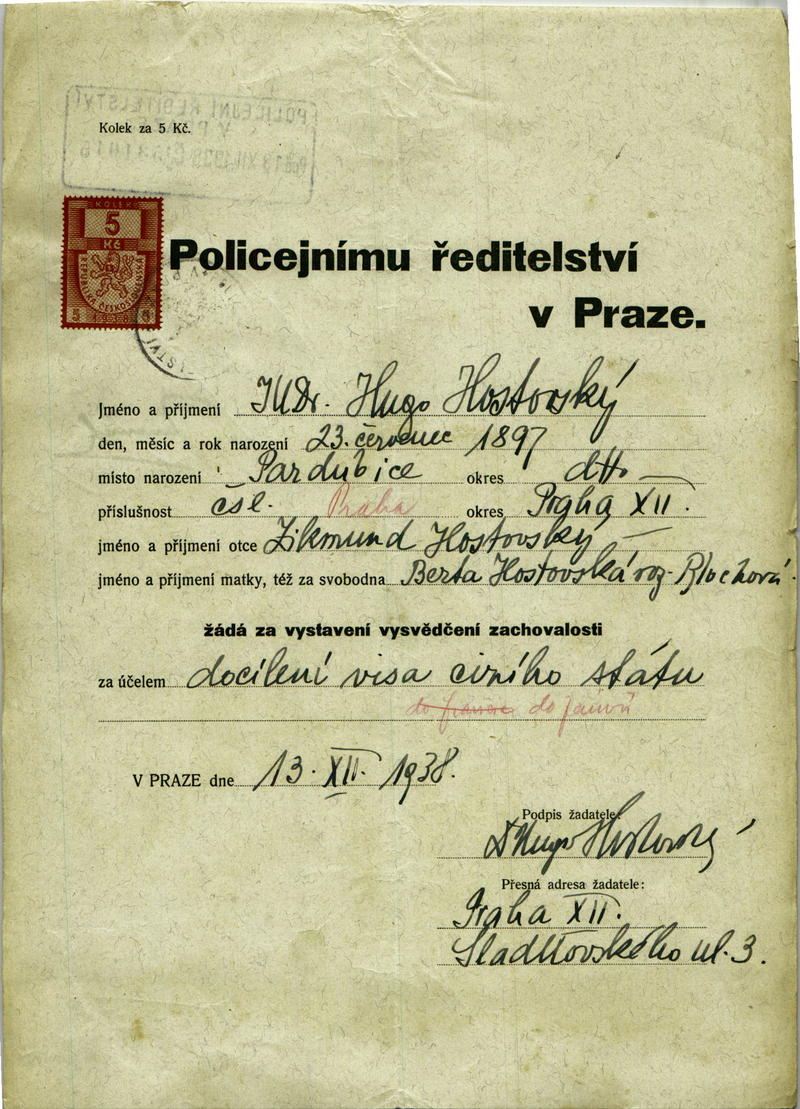 POLICEJNÍ ŘEDITELSTVÍ
V P
Kolek za 5 Kč.
KOLEK
5
Kč
REPUBLIKA ČESKOSLOVENSKÁ
5
Policejnímu ředitelství
v Praze.
Jméno a příjmení JUDr. Hugo Hostovský
den, měsíc a rok narození 23. červenec 1897
místo narození Pardubice okres dtto
příslušnost čsl. Praha okres Praha XII.
jméno a příjmení otce Zikmund Hostovský
jméno a příjmení matky, též za svobodna Berta Hostovská roz. Blochová
žádá za vystavení vysvědčení zachovalosti
za účelem docílení visa cizího státu
do do
V PRAZE dne 13. XII. 1938.
Podpis žadatele:
Dr Hugo Hostovský
Přesná adresa žadatele:
Praha XII.
Sladkovského ul. 3.